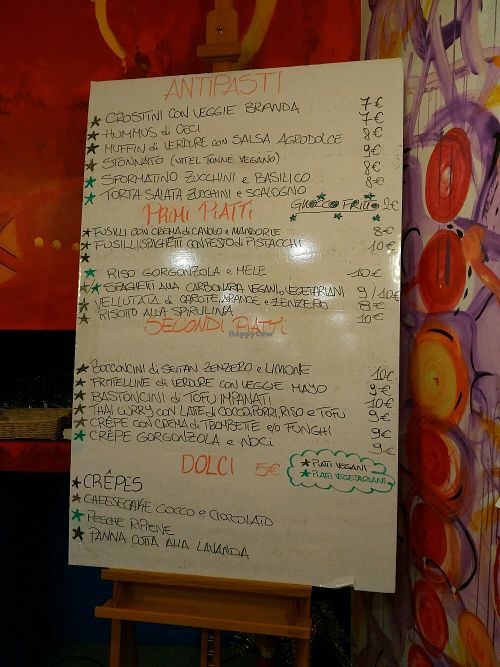 ANTIPASTI
CROSTINI CON VEGGIE BRANDA 7€
HUMMUS di CECI 7€
MUFFIN di VERDURE CON SALSA AGRODOLCE 8€
STONNATO (VITEL TONNÉ VEGANO) 9€
SFORMATINO ZUCCHINI e BASILICO 8€
TORTA SALATA ZUCCHINI e SCALOGNO 8€
GNOCCO FRITTO 9€
PRIMI PIATTI
FUSILLI CON CREMA di CAVOLO e MANDORLE 8€
FUSILLI/SPAGHETTI CON PESTO di PISTACCHI 10€
RISO GORGONZOLA e MELE 10€
SPAGHETTI ALLA CARBONARA VEGANI o VEGETARIANI 9/10€
VELLUTATA di CAROTE, ARANCE e ZENZERO 8€
RISOTTO ALLA SPIRULINA 10€
SECONDI PIATTI
BOCCONCINI di SEITAN ZENZERO e LIMONE 10€
FRITTELLINE di VERDURE CON VEGGIE MAYO 9€
BASTONCINI di TOFU IMPANATI 10€
THAI CURRY CON LATTE di COCCO, PORRI, RISO e TOFU 9€
CRÊPE CON CREMA di TROMBETTE e/o FUNGHI 9€
CRÊPE GORGONZOLA e NOCI 9€
DOLCI 5€
PIATTI VEGANI
PIATTI VEGETARIANI
CRÊPES
CHEESECAKE COCCO e CIOCCOLATO
PESCHE RIPIENE
PANNA COTTA ALLA LAVANDA
HappyCow